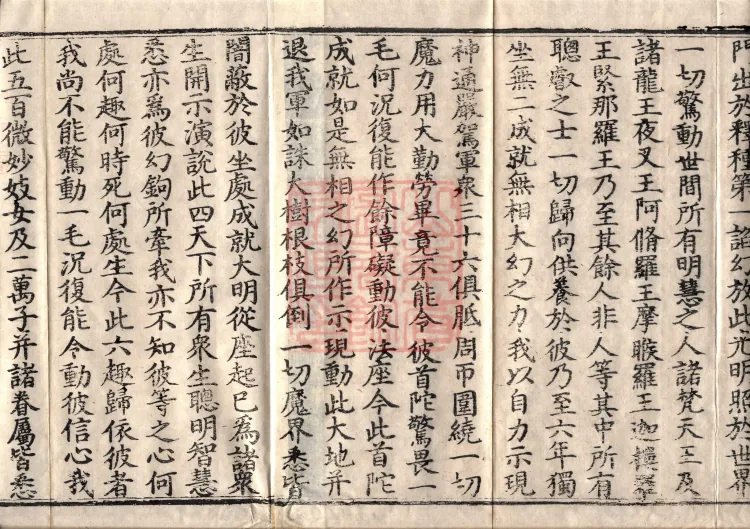 門出於釋種第一諂幻放此光明照於世界
一切驚動世間所有明慧之人諸梵天王及
諸龍王夜叉王阿脩羅王摩睺羅王迦樓羅
王緊那羅王乃至其餘人非人等其中所有
聰叡之士一切歸向供養於彼乃至六年獨
坐無二成就無相大幻之力我以自力示現
神通嚴駕軍衆三十六俱胝周帀圍繞一切
魔力用大勤勞畢竟不能令彼首陀驚畏一
毛何況復能作餘障礙動彼法座今此首陀
成就如是無相之幻所作示現動此大地并
退我軍如誅大樹根枝俱倒一切魔界悉皆
闇蔽於彼坐處成就大明從座起已為諸衆
生開示演說此四天下所有衆生聰明智慧
悉亦為彼幻鉤所牽我亦不知彼等之心何
處何趣何時死何處生今此六趣歸依彼者
我尚不能驚動一毛況復能令動彼信心我
此五百微妙妓女及二萬子并諸眷屬皆悉